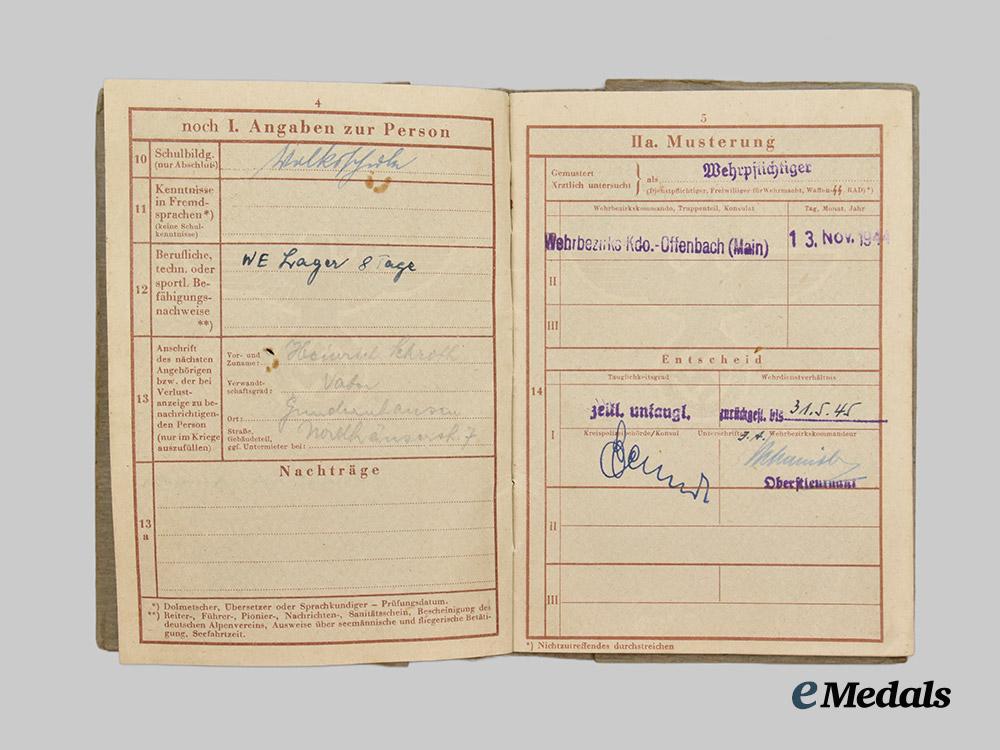 4
noch I. Angaben zur Person
10 Schulbildg. (nur Abschluß)
Volksschule
11 Kenntnisse in Fremd-
sprachen *)
(keine Schul-
kenntnisse)
12 Berufliche,
techn. oder
sportl. Be-
fähigungs-
nachweise
**)
WE Lager 8 Tage
13 Anschrift
des nächsten
Angehörigen
bzw. der bei
Verlust-
anzeige zu be-
nachrichtigen-
den Person
(nur im Kriege
auszufüllen)
Vor- und
Zuname: Heinrich Schroth
Verwandt-
schaftsgrad: Vater
Ort: Gundernhausen
Straße,
Gebäudeteil,
ggf. Untermieter bei: 7
Nachträge
13
a
*) Dolmetscher, Übersetzer oder Sprachkundiger – Prüfungsdatum.
**) Reiter-, Führer-, Pionier-, Nachrichten-, Sanitätsschein, Bescheinigung des
deutschen Alpenvereins, Ausweise über seemännische und fliegerische Betäti-
gung, Seefahrtzeit.
5
IIa. Musterung
Gemustert
Ärztlich untersucht } als Wehrpflichtiger
(Dienstpflichtiger, Freiwilliger für Wehrmacht, Waffen-SS RAD) *)
Wehrbezirkskommando, Truppenteil, Konsulat Tag, Monat, Jahr
Wehrbezirks Kdo.-Offenbach (Main) 13. Nov. 1944
II
III
Entscheid
Tauglichkeitsgrad Wehrdienstverhältnis
14
zeitl. untaugl. zurückgest. bis 31.5.45
I Kreispolizeibehörde/Konsul Unterschrift Wehrbezirkskommandeur
Oberstleutnant
II
III
*) Nichtzutreffendes durchstreichen
eMedals